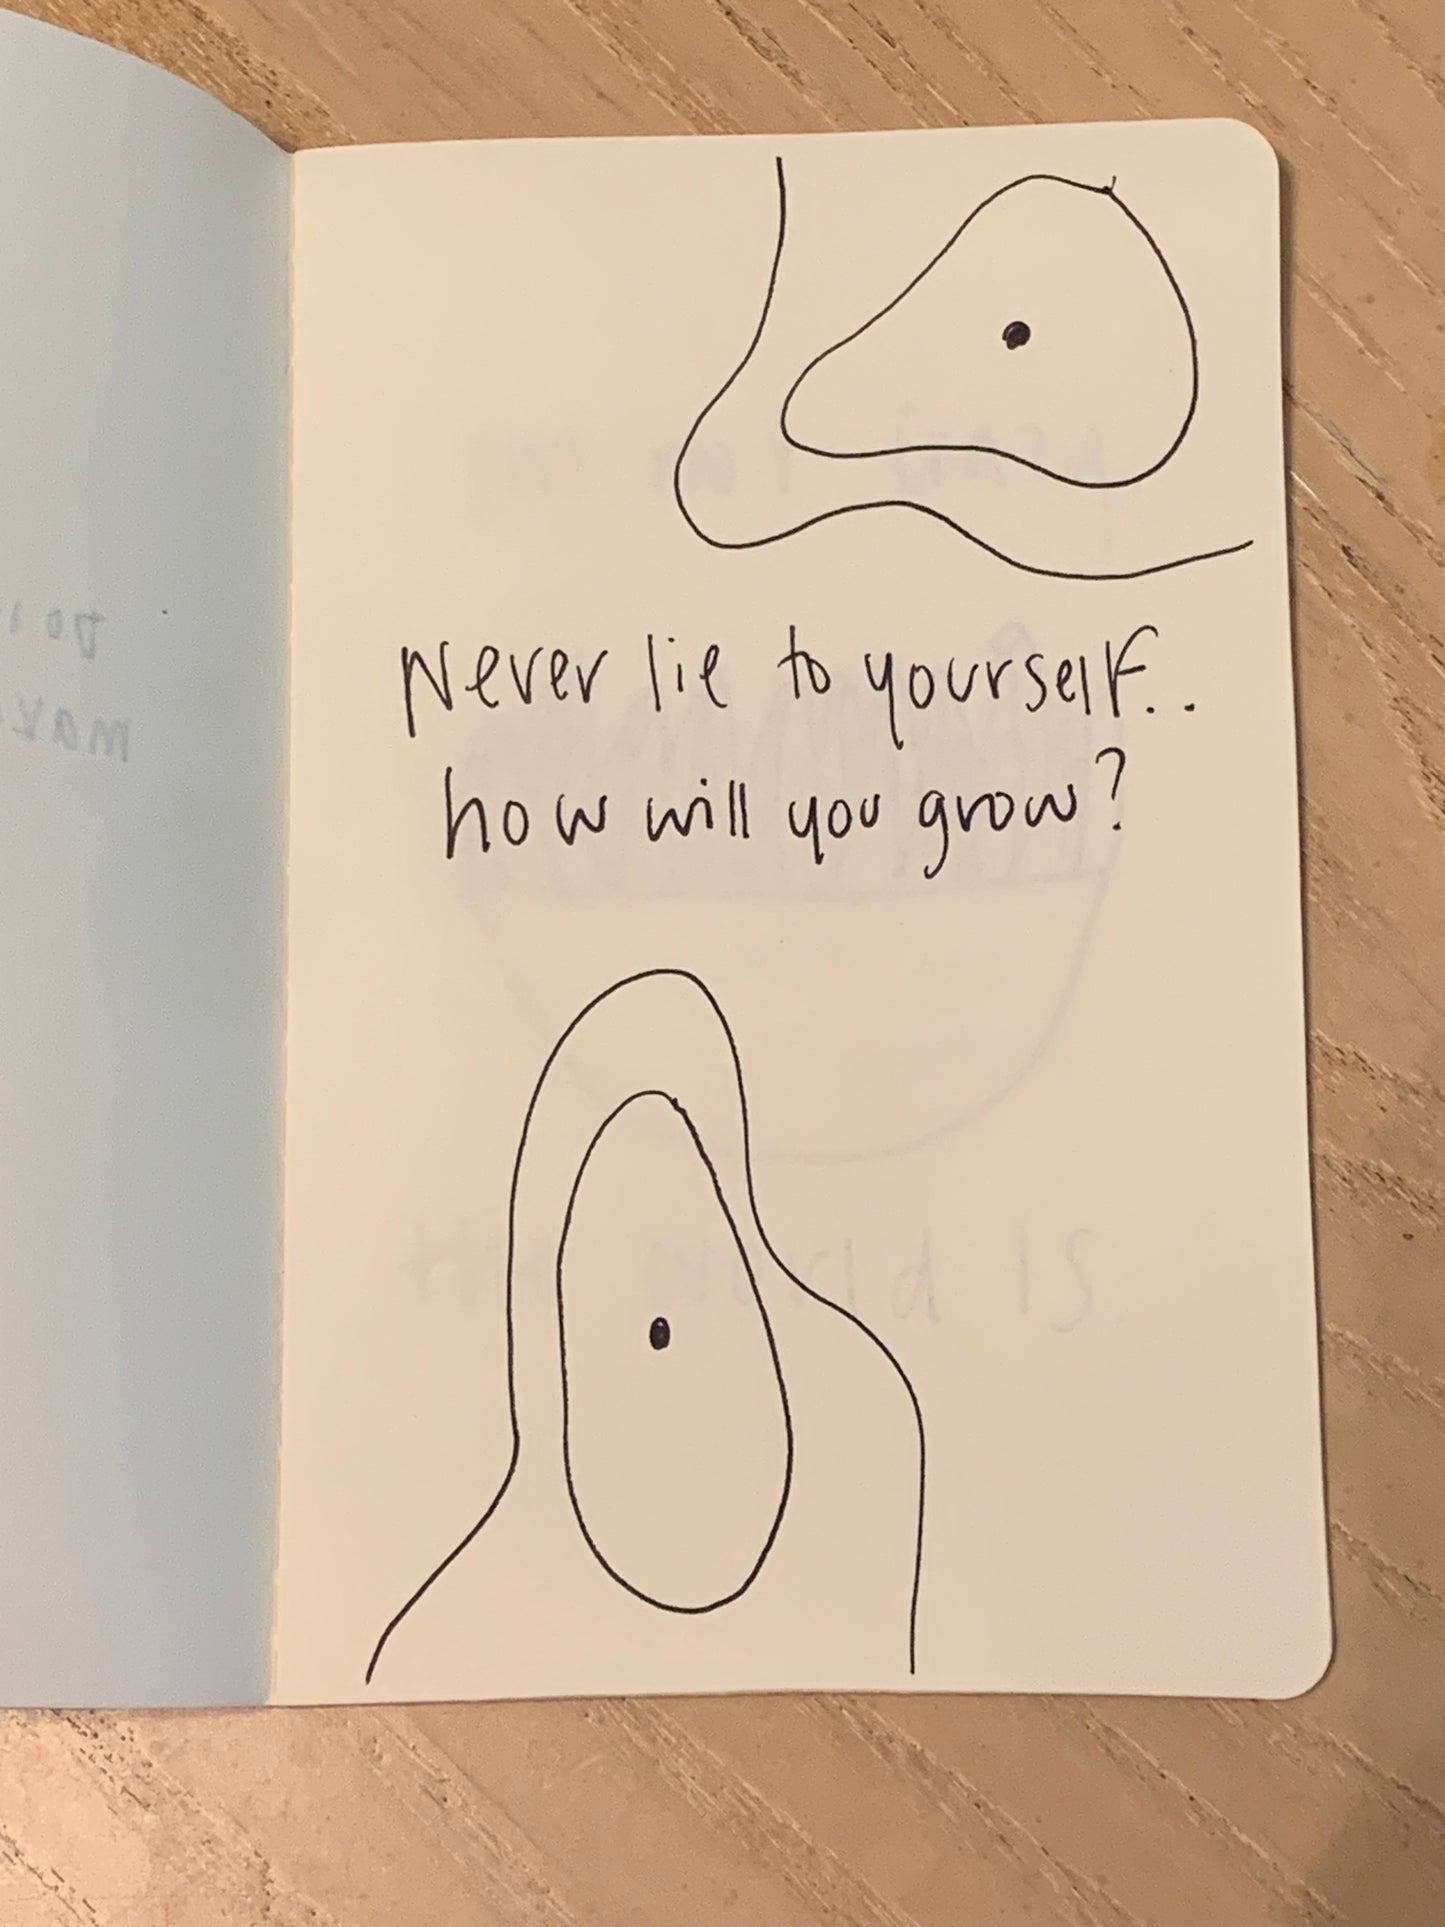 Never lie to yourself..
how will you grow?